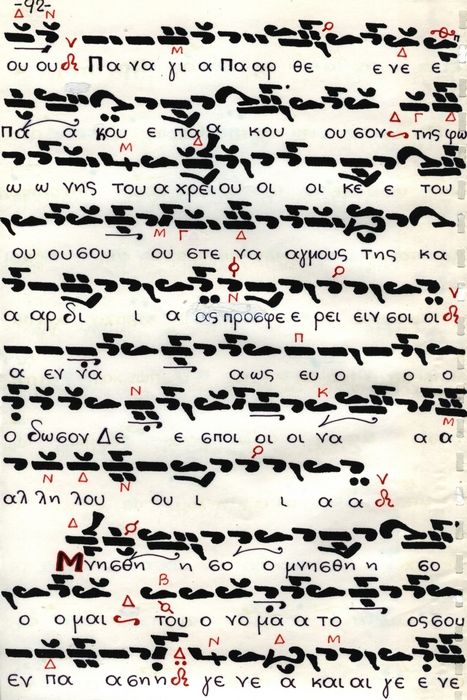 -92-
ου ου Πα να γι α Πα αρ θε ε νε ε
Πα α κου ε πα α κου ου σον της φω
ω ω νης του α χρει ου οι οι κε ε του
ου ου σου ου στε να αγμους της κα
α αρ δι ι α ας προσφε ε ρει ειν σοι οι
α εν να α ως ευ ο ο ο
ο δωσον Δε ε σποι οι οι να α α
αλ λη λου ου ι ι α α
Μνησθη η σο ο μνησθη η σο
ο ο μαι του ο νο μα α το ος σου
εν πα α ση η γε νε α και αι γε ε νε